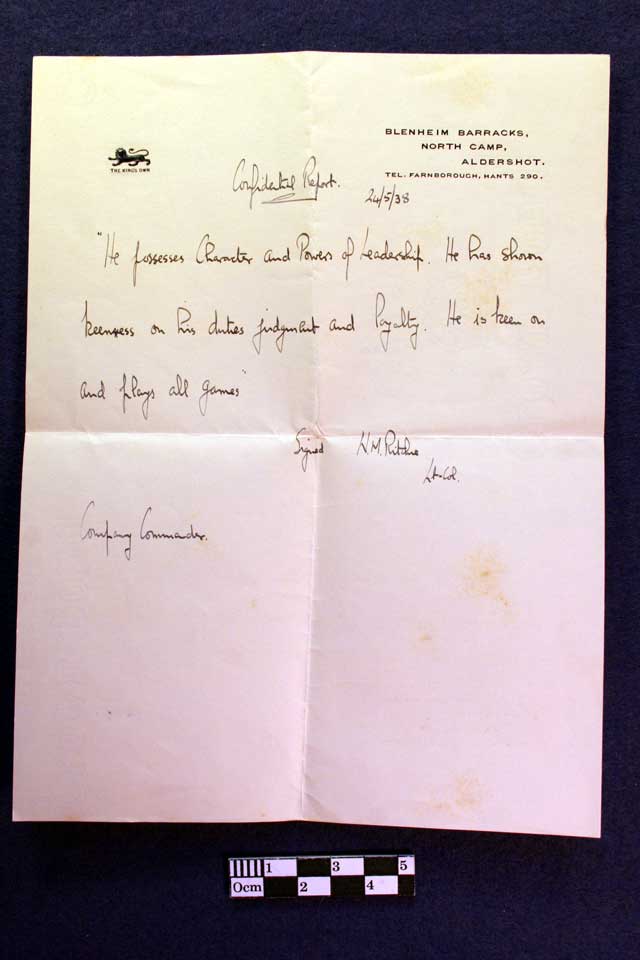 BLENHEIM BARRACKS,
NORTH CAMP,
ALDERSHOT.
TEL. FARNBOROUGH, HANTS 290.
THE KING'S OWN
Confidential Report.
24/5/38
"He possesses Character and Powers of Leadership. He has shown
keenness on his duties judgment and loyalty. He is keen on
and plays all games"
Signed W.M. Ritchie
Lt-Col.
Company Commander.
0cm 1 2 3 4 5